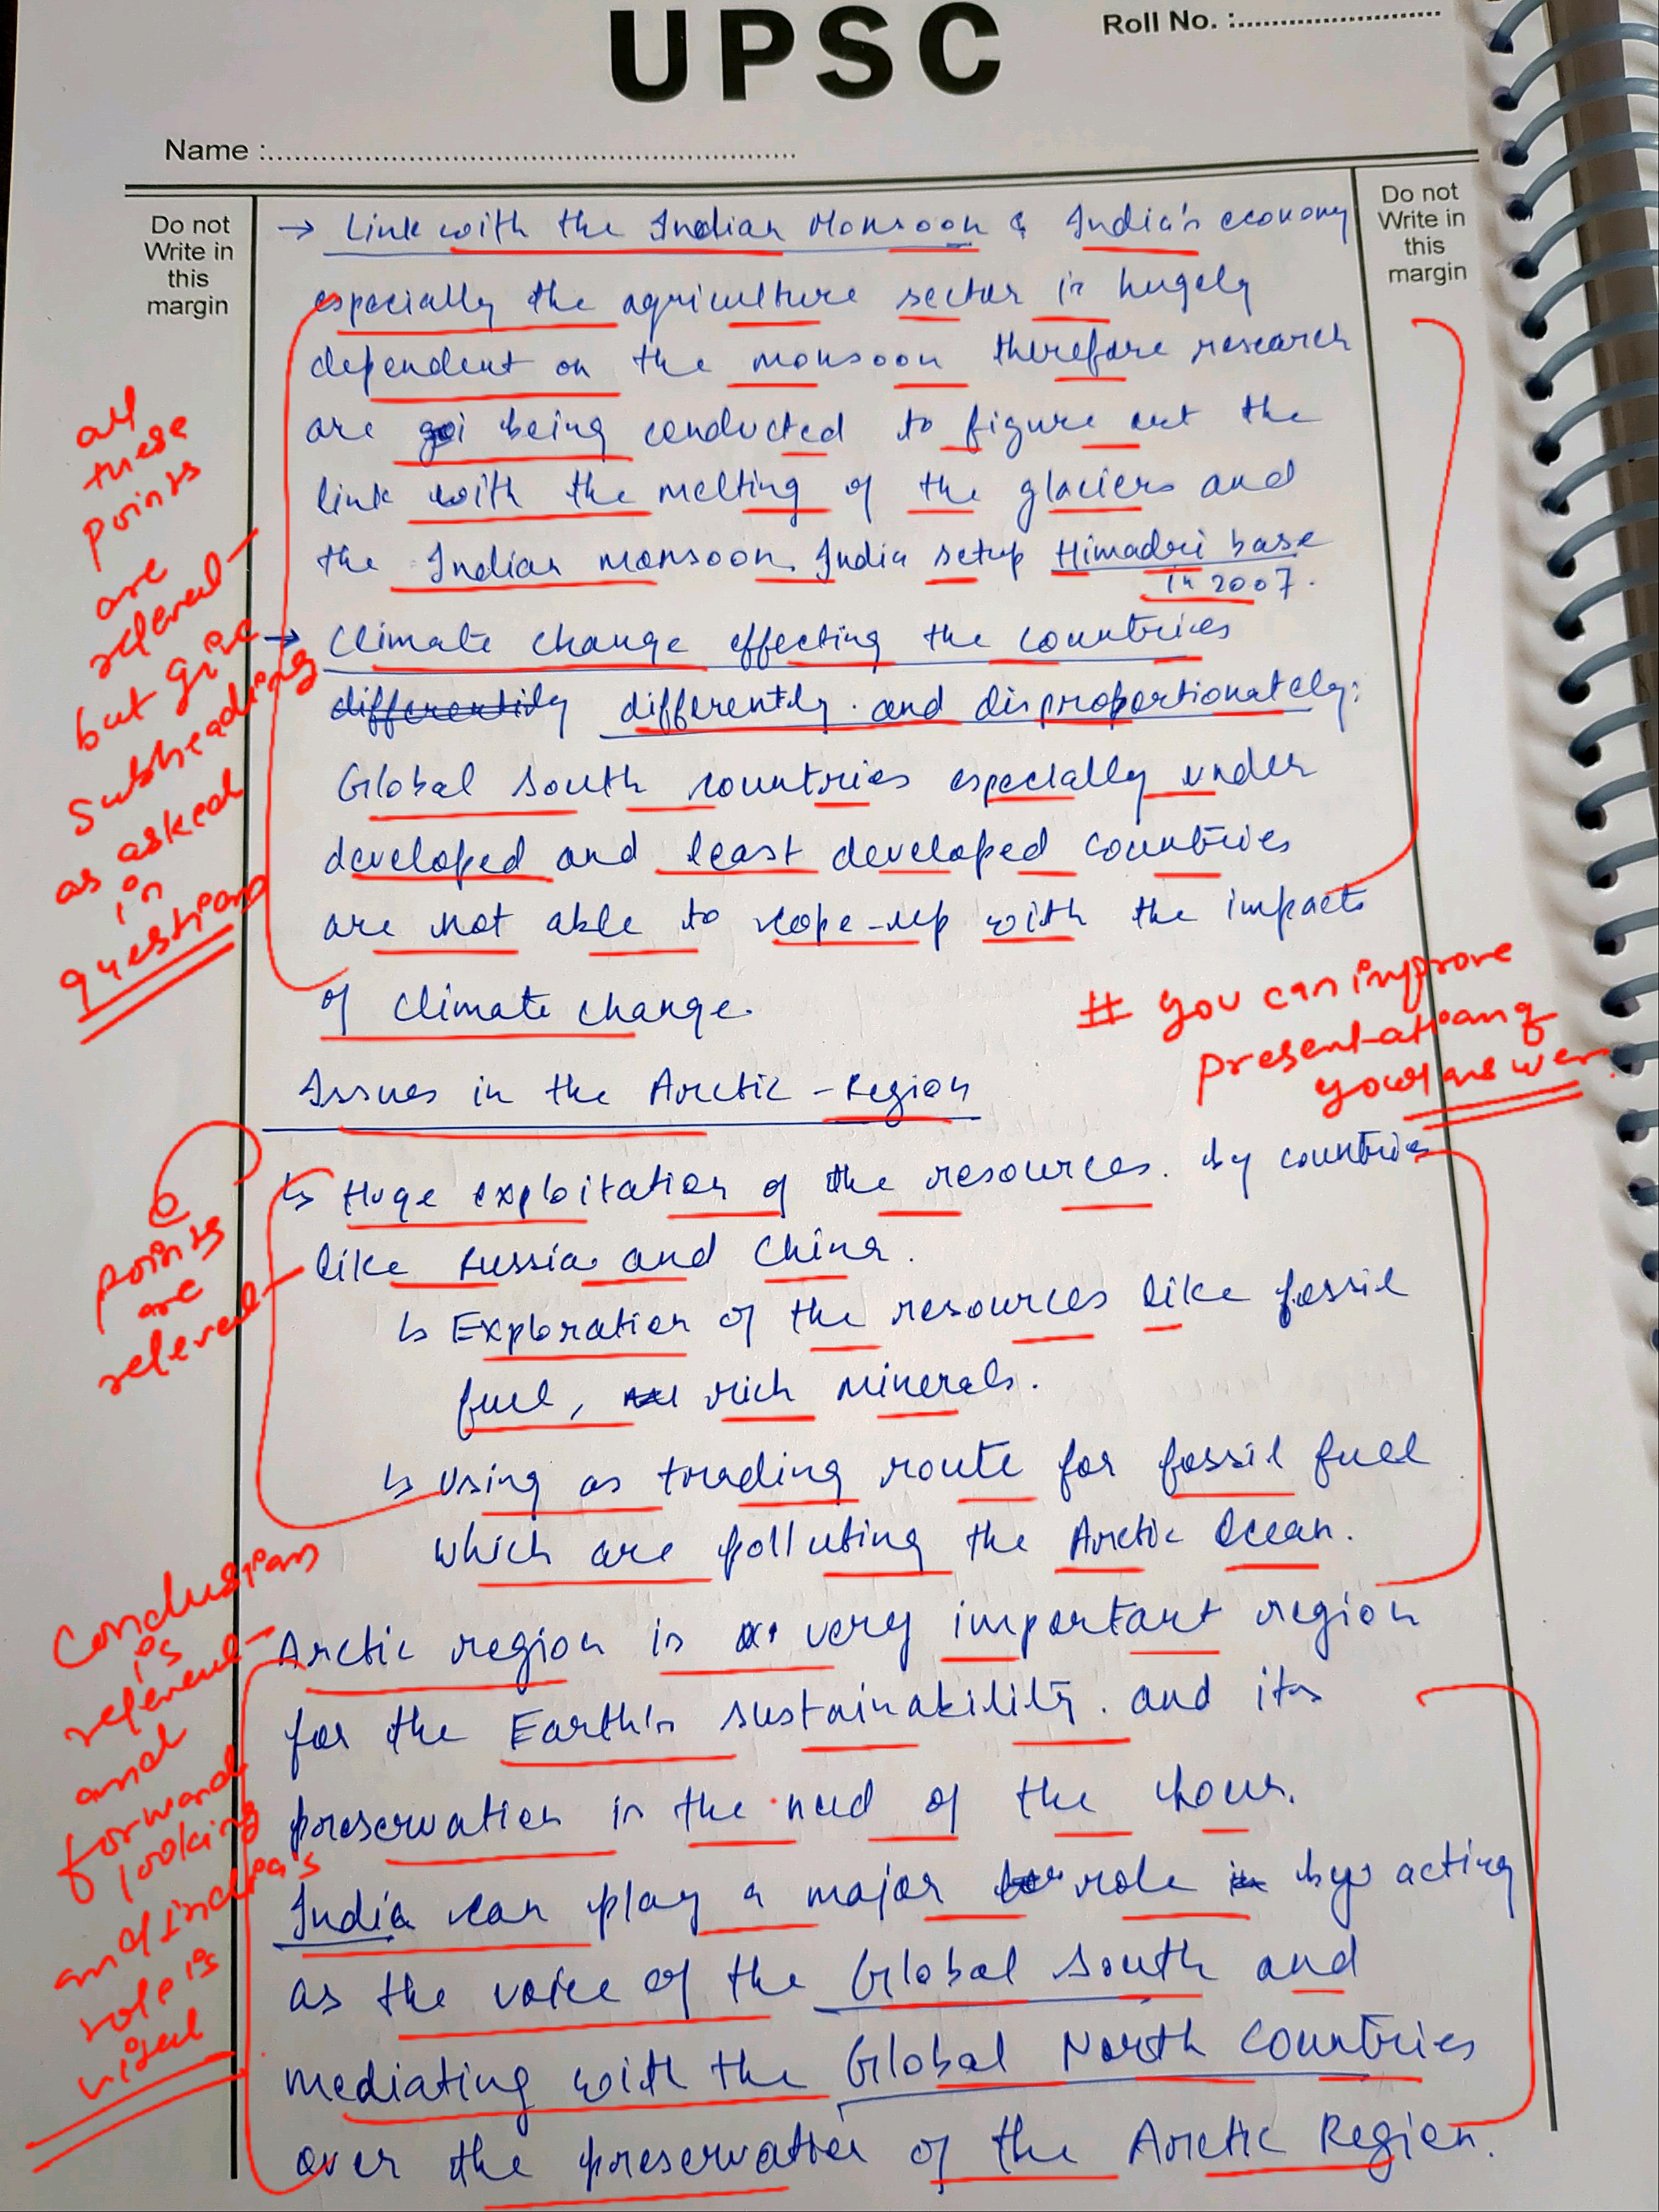 UPSC
Roll No. :........................
Name :............................................................
Do not
Write in
this
margin
Do not
Write in
this
margin
→ Link with the Indian Monsoon & India's economy
especially the agriculture sector is hugely
dependent on the monsoon therefore research
are goi being conducted to figure out the
link with the melting of the glaciers and
the Indian monsoon. India setup Himadri base
in 2007.
→ Climate change effecting the countries
differently differently and disproportionately:
Global South countries especially under
developed and least developed countries
are not able to cope-up with the impacts
of climate change.
all
these
points
are
referal
but give
subheading
as asked
in
question
# You can improve
presentation of
your answer.
Issues in the Arctic-Region
↳ Huge exploitation of the resources. by countries
like Russia and China.
↳ Exploration of the resources like fossil
fuel, rich minerals.
↳ Using as trading route for fossil fuel
which are polluting the Arctic Ocean.
points
are
referal
Arctic region is a very important region
for the Earth's sustainability. and its
preservation is the need of the hour.
India can play a major role by acting
as the voice of the Global South and
mediating with the Global North Countries
over the preservation of the Arctic Region.
Conclusion
is
referal
and
forward
looking
and India's
role is
vital